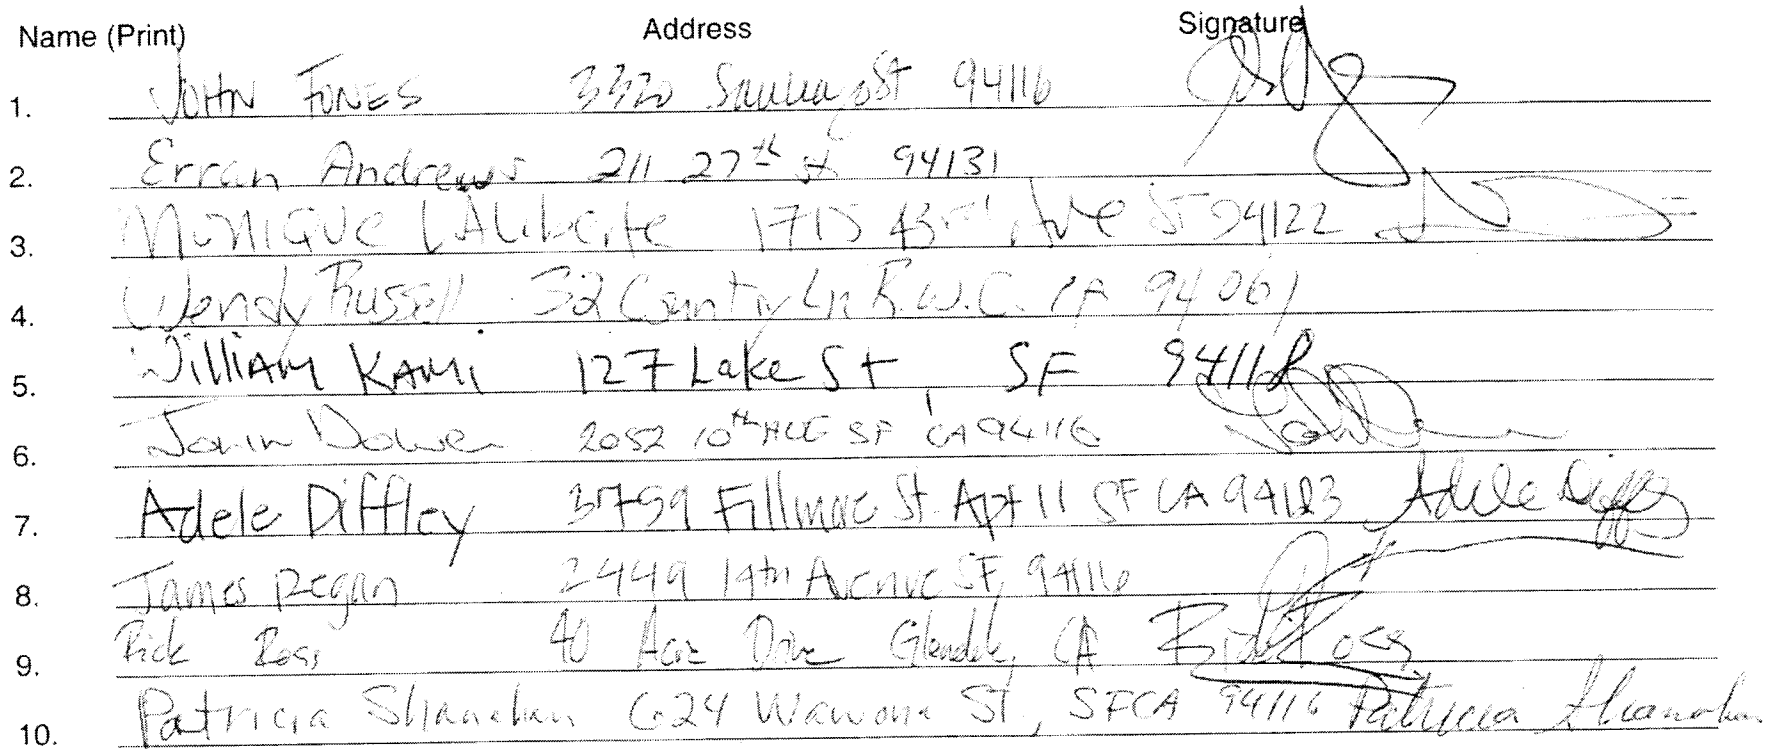 Name (Print) Address Signature
1. JOHN JONES 3320 St 94116
2. Erran Andrews 211 27th st 94131
3. MONIQUE LALiberte 1715 43rd Ave SF 94122
4. Wendy Russell 32 County Ln R.W.C. CA 94061
5. WilliAM KAMI 127 Lake St, SF 94118
6. John 2052 10th AVE SF CA 94116
7. Adele Diffley 3759 Fillmore St. Apt 11 SF CA 94123 Adele Diffley
8. James Regan 2449 14th Avenue SF, 94116
9. Rick Ross 40 Acre Drive Glendale, CA Rick Ross
10. Patricia Shanahan 624 Wawona St, SFCA 94116 Patricia Shanahan